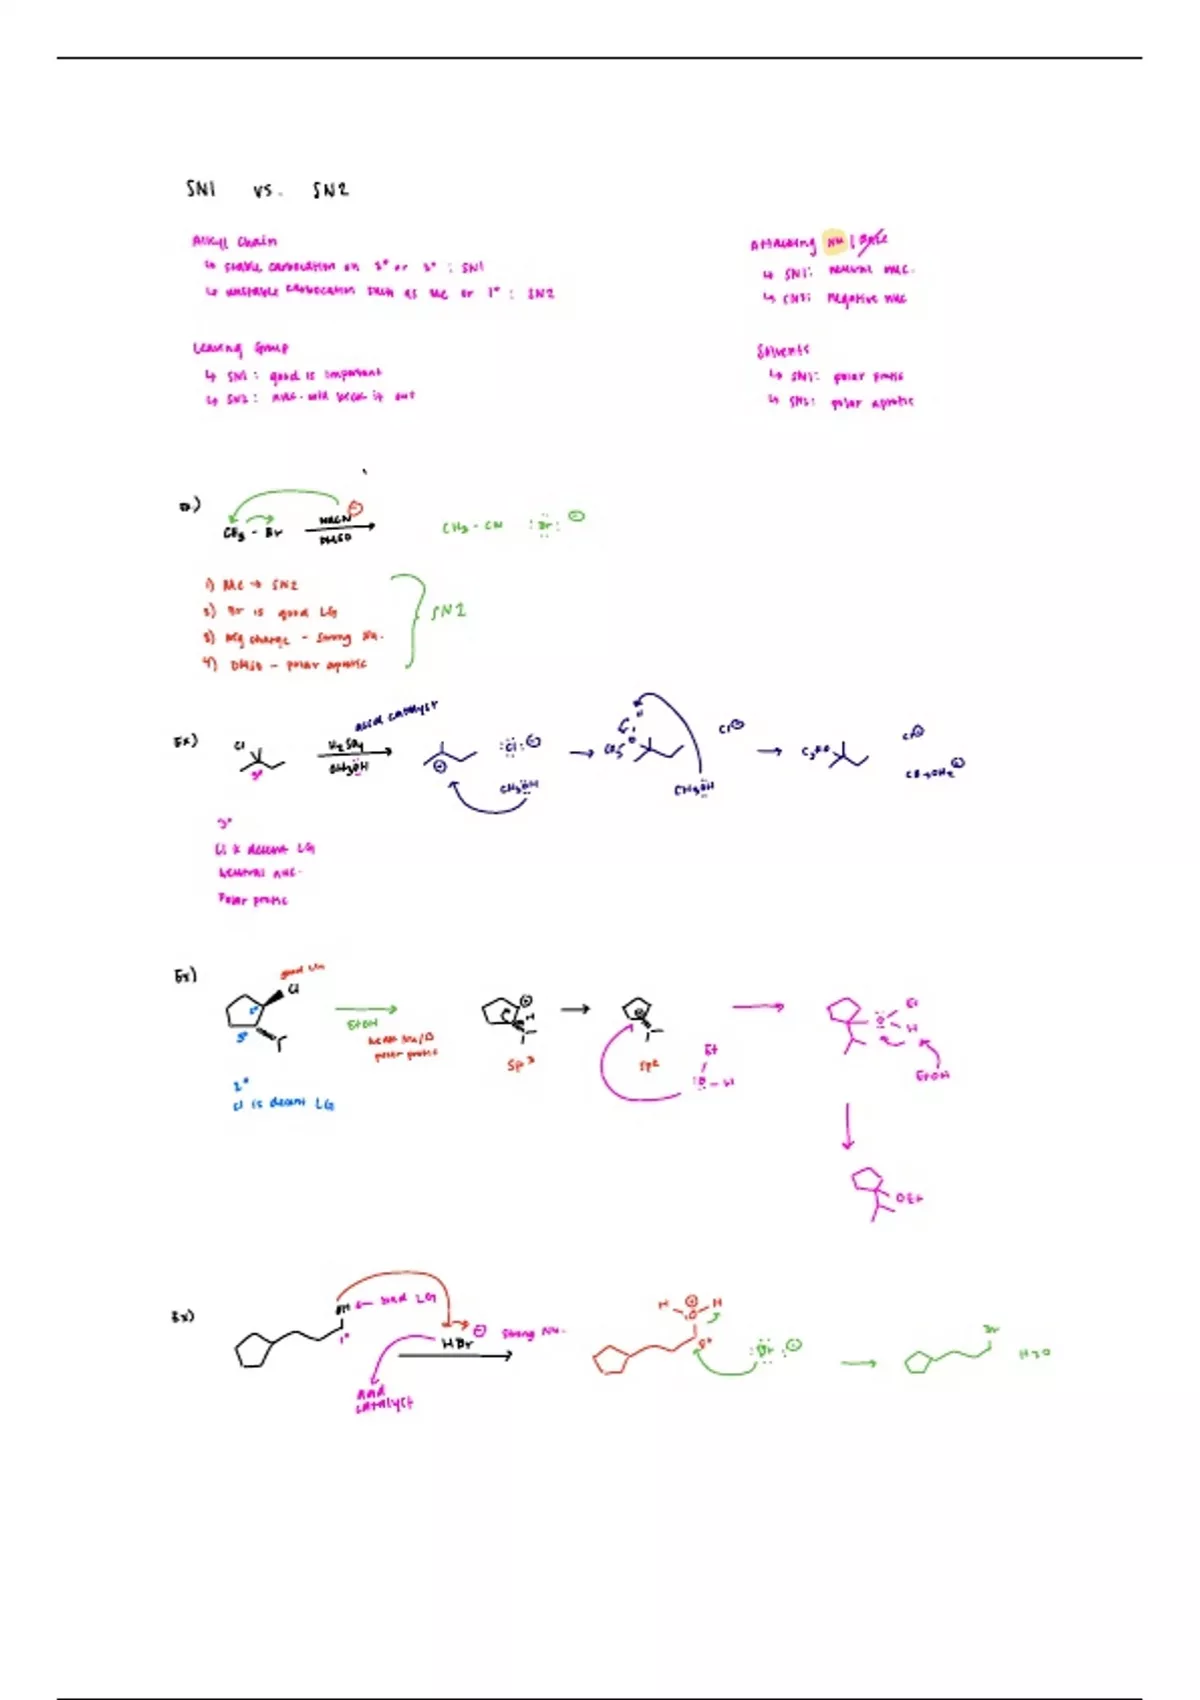 SN1 vs. SN2
Alkyl Chain
↳ stable carbocation on 2° or 3° : SN1
↳ unstable carbocation such as Me or 1° : SN2
Attacking Nu | Base
↳ SN1: neutral nuc.
↳ SN2: negative nuc
Leaving Group
↳ SN1: good is important
↳ SN2: nuc. will kick it out
Solvents
↳ SN1: polar protic
↳ SN2: polar aprotic
Ex)
CH3 - Br
NaCN ⊖
DMSO
CH3 - CN :Br: ⊖
1) Me → SN2
2) Br is good LG
3) neg charge - strong Nu.
4) DMSO - polar aprotic
SN2
Ex)
Cl
3°
acid catalyst
H2SO4
CH3OH
⊕
:Cl: ⊖
CH3OH
H
Cl ⊖
CH3OH
Cl ⊖
CH3OH2 ⊕
3°
Cl is decent LG
neutral nuc.
Polar protic
Ex)
good LG
Cl
2°
3°
EtOH
weak Nu/B
polar protic
⊕
H
sp3
⊕
sp2
Et
O - H
Et
O
H
EtOH
2°
Cl is decent LG
OEt
Ex)
OH ← bad LG
1°
HBr ⊖ strong Nu.
acid
catalyst
H O H
⊕
:Br: ⊖
Br
H2O